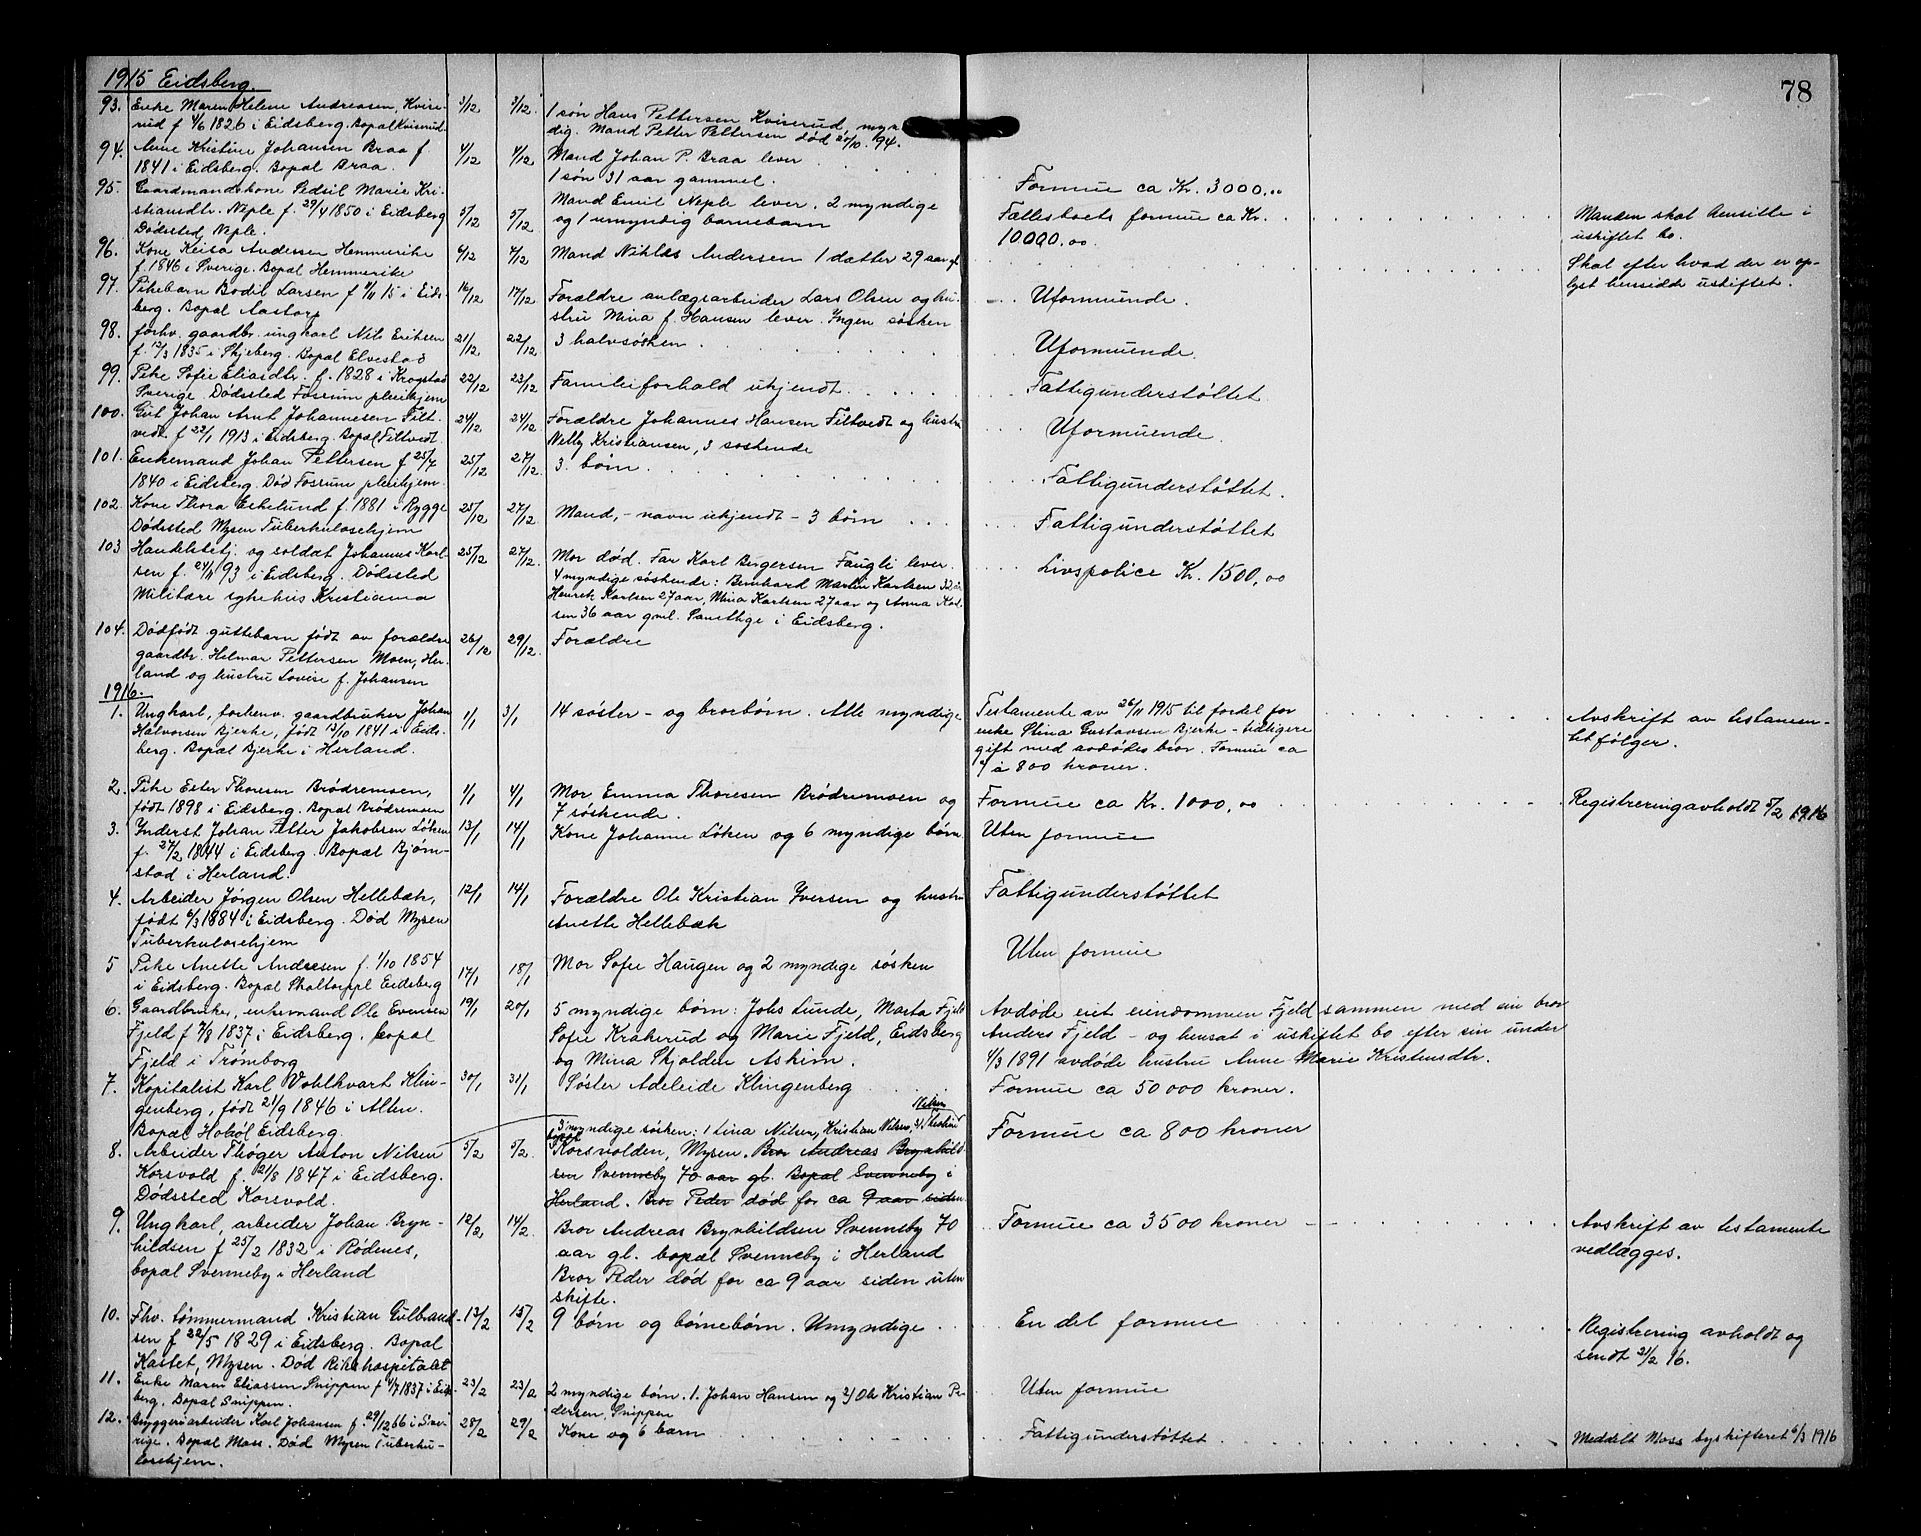 78
1915 Eidsberg.
93. Enke Maren Helene Andreasen, Kvise- 3/12 3/12. 1 søn Hans Pettersen Kviserud, myn
rud f 4/6 1826 i Eidsberg. Bopal Kviserud. dig. Mand Petter Pettersen død 20/10. 94.
94. Anne Kristine Johansen Braa f. 4/12 4/12 Mand Johan P. Braa lever
1841 i Eidsberg. Bopal Braa. 1 søn 31 aar gammel. Formue ca Kr. 3000,00
95. Gaardmandskone Pedsil Marie Kri- Mand Emil Neple lever. 2 myndige
stiansdtr. Neple f. 29/4 1850 i Eidsberg 5/12 5/12 og 1 umyndig barnebarn Fællesboets formue ca Kr. Manden skal hensitte i
Dødssted Neple. 10000.00. uskiftet bo.
96. Kone Keisa Andersen Hemmerike 6/12 7/12 Mand Niklas Andersen 1 datter 29 aar gl. Skal efter hvad der er op-
f. 1846 i Sverige. Bopæl Hemmerike lyst hensidde uskiftet.
97. Pikebarn Bodil Larsen f 4/11 15 i Eids- 16/12 17/12 Forældre anlægsarbeider Lars Olsen og hu- Uformuende.
berg. Bopæl Aastorp stru Mina f. Hansen lever. Ingen søsken
98. forhv. gaardbr. ungkarl Nils Eriksen 21/12 22/12 3 halvsøsken. Uformuende.
f. 12/3 1835 i Skjeberg. Bopæl Elvestad
99. Pike Sofie Eliasdtr. f. 1828 i Krogstad 22/12 23/12 Familieforhold ukjendt. Fattigunderstøttet.
Sverige. Dødssted Fossum pleiehjem
100. Gut Johan Arnt Johannesen Filt- 24/12 24/12 Forældre Johannes Hansen Filtvedt og hustru Uformuende.
vedt f 22/1 1913 i Eidsberg. Bopæl Filtvedt. Nelly Kristiansen, 3 søskende
101. Enkemand Johan Pettersen f 25/7 25/12 27/12. 3. børn. Fattigunderstøttet.
1840 i Eidsberg. Død Fossum pleiehjem.
102. Kone Thora Eekelund f. 1881 i Rygge 25/12 27/12. Mand, - navn ukjendt - 3 børn Fattigunderstøttet
Dødssted Mysen Tuberkulosehjem
103 Handelsbetj. og soldat Johannes Karl- 25/12 27/12. Mor død. Far Karl Bergersen Faugli lever. Livspolice Kr. 1500,00
sen f. 24/11 93 i Eidsberg. Dødssted 4 myndige søskende: Bernhard Martin Karlsen 32 aar
Militære sykehus Kristiania Henrik Karlsen 27 aar, Mina Karlsen 27 aar og Anna Karl-
sen 36 aar gml. Samtlige i Eidsberg.
104. Dødfødt guttebarn født av forældre 26/12 29/12. Forældre
gaardbr. Helmar Pettersen Moen, Her-
land og hustru Lovise f. Johansen
1916.
1. Ungkarl, forhenv. gaardbruker Johan 1/1 3/1 14 søster- og brorbørn. Alle myndige Testamente av 26/11 1915 til fordel for Avskrift av testamen-
Halvorsen Bjerke, født 13/10 1841 i Eids- enke Stina Gustavsen Bjerke - tidligere tet følger.
berg. Bopæl Bjerke i Herland. gift med avdødes bror. Formue ca
800 kroner.
2. Pike Ester Thoresen Brødremoen, 1/1 4/1 Mor Emma Thoresen Brødremoen og Formue ca Kr. 1000,00 Registrering avholdt 5/2 1916
født 1898 i Eidsberg. Bopæl Brødremoen 7 søskende.
3. Inderst Johan Petter Jakobsen Løken 13/1 14/1 Kone Johanne Løken og 6 myndige børn. Uten formue
f. 27/2 1844 i Eidsberg. Bopæl Bjørn-
stad i Herland.
4. Arbeider Jørgen Olsen Hellebæk, 12/1 14/1 Forældre Ole Kristian Iversen og hustru Fattigunderstøttet
født 6/3 1884 i Eidsberg. Død Mysen Anette Hellebæk
Tuberkulosehjem
5 Pike Anette Andresen f. 1/10 1854 17/1 18/1 Mor Sofie Haugen og 2 myndige søsken Uten formue
i Eidsberg. Bopæl Skaltorppl Eidsberg
6. Gaardbruker, enkemand Ole Evensen 19/1 20/1 5 myndige børn: Johs Lunde, Marta Fjeld Avdøde eiet eiendommen Fjeld sammen med sin bror
Fjeld f 7/8 1837 i Eidsberg. bopæl Sofie Krakerud og Marie Fjeld, Eidsberg Anders Fjeld - og hensat i uskiftet bo efter sin under
Fjeld i Trømborg og Mina Skjolden Askim. 4/3 1891 avdøde hustru Anne Marie Kristensdtr.
7. Kapitalist Karl Vohlkvart Klin- 30/1 31/1 Søster Adeleide Klingenberg Formue ca 50 000 kroner.
genberg, født 21/9 1846 i Alten.
Bopæl Hobøl Eidsberg. Nilsen
3 myndige søsken: 1 Lina Nilsen, Kristian Nilsen, 3/ Thestine Formue ca 800 kroner
8. Arbeider Thøger Anton Nilsen 5/2 5/2. bopæl Korsvolden, Mysen. Bror Andreas Brynhild-
Korsvold f. 21/8 1847 i Eidsberg. sen Svenneby 70 aar gl. Bopæl Svenneby i
Dødssted Korsvold. Herland. Bror Peder død for ca 9 aar siden.
9. Ungkarl, arbeider Johan Bryn- 12/2 14/2. Bror Andreas Brynhildsen Svenneby 70 Formue ca 3500 kroner Avskrift av testamente
hildsen f 25/2 1832 i Rødenes, aar gl. bopæl Svenneby i Herland vedlægges.
bopæl Svenneby i Herland Bror Peder død for ca 9 aar siden uten
skifte.
10. Fhv. tømmermand Kristian Gulbrand- 13/2 15/2 9 børn og børnebørn. Umyndige En del formue Registrering avholdt og
sen f 22/5 1829 i Eidsberg. Bopæl sendt 21/2 16.
Kastet, Mysen. Død Rikshospitalet
11. Enke Maren Eliassen Snippen f 4/7 1837 i Eids- 23/2 23/2 2 myndige børn. 1. Johan Hansen og 2/ Ole Kristian Pe- Uten formue
berg, Bopæl Snippen. dersen, Snippen
12. Bryggeriarbeider Karl Johansen f. 29/12 66 i Sve- 28/2 29/2 Kone og 6 barn Fattigunderstøttet Meddelt Moss byskifteret 6/3 1916
rige. Bopæl Moss. Død Mysen Tuberku-
losehjem.